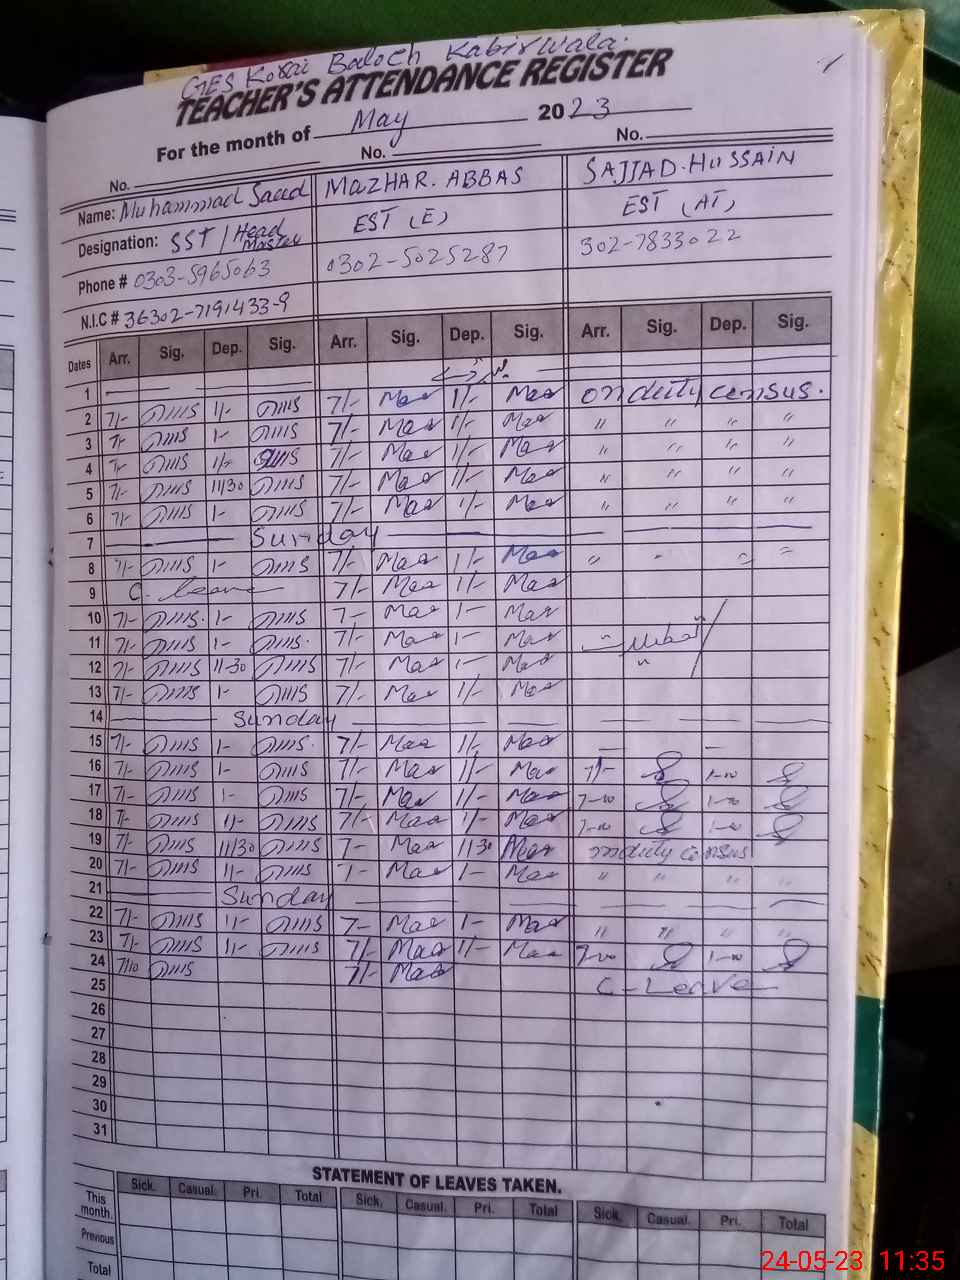 GES Korai Baloch Kabirwala.
TEACHER'S ATTENDANCE REGISTER
For the month of May 2023
No. No. No.
Name: Muhammad Saeed MAZHAR. ABBAS SAJJAD. HUSSAIN
Designation: SST / Head Master EST (E) EST (AT)
Phone # 0303-5965063 0302-5025287 302-7833022
N.I.C # 36302-7191433-9
Dates Arr. Sig. Dep. Sig. Arr. Sig. Dep. Sig. Arr. Sig. Dep. Sig.
1
2 7/- 1/- 7/- 1/- on duty census.
3 7/- 1- 7/- 1/- " " " "
4 7/- 1/- 7/- 1/- " " " "
5 7/- 11/30 7/- 1/- " " " "
6 7/- 1- 7/- 1/- " " " "
7 Sunday
8 7/- 1- 7/- 1/- " " " "
9 C. leave 7/- 1/-
10 7/- 1- 7- 1-
11 7/- 1- 7/- 1-
12 7/- 11-30 7/- 1- "
13 7/- 1- 7/- 1/-
14 Sunday
15 7/- 1- 7/- 1/-
16 7/- 1- 7/- 1/- 7/- 1-00
17 7/- 1- 7/- 1/- 7-00 1-00
18 7/- 1/- 7/- 1/- 7-00 1-00
19 7/- 11/30 7- 1130 on duty census
20 7/- 1/- 7- 1- " " " "
21 Sunday
22 7/- 1/- 7- 1- " " " "
23 7/- 1/- 7/- 1/- 7-00 1-00
24 7/10 7/- C-Leave
25
26
27
28
29
30
31
STATEMENT OF LEAVES TAKEN.
Sick. Casual. Pri. Total Sick. Casual. Pri. Total Sick. Casual. Pri. Total
This month.
Previous
Total
24-05-23 11:35